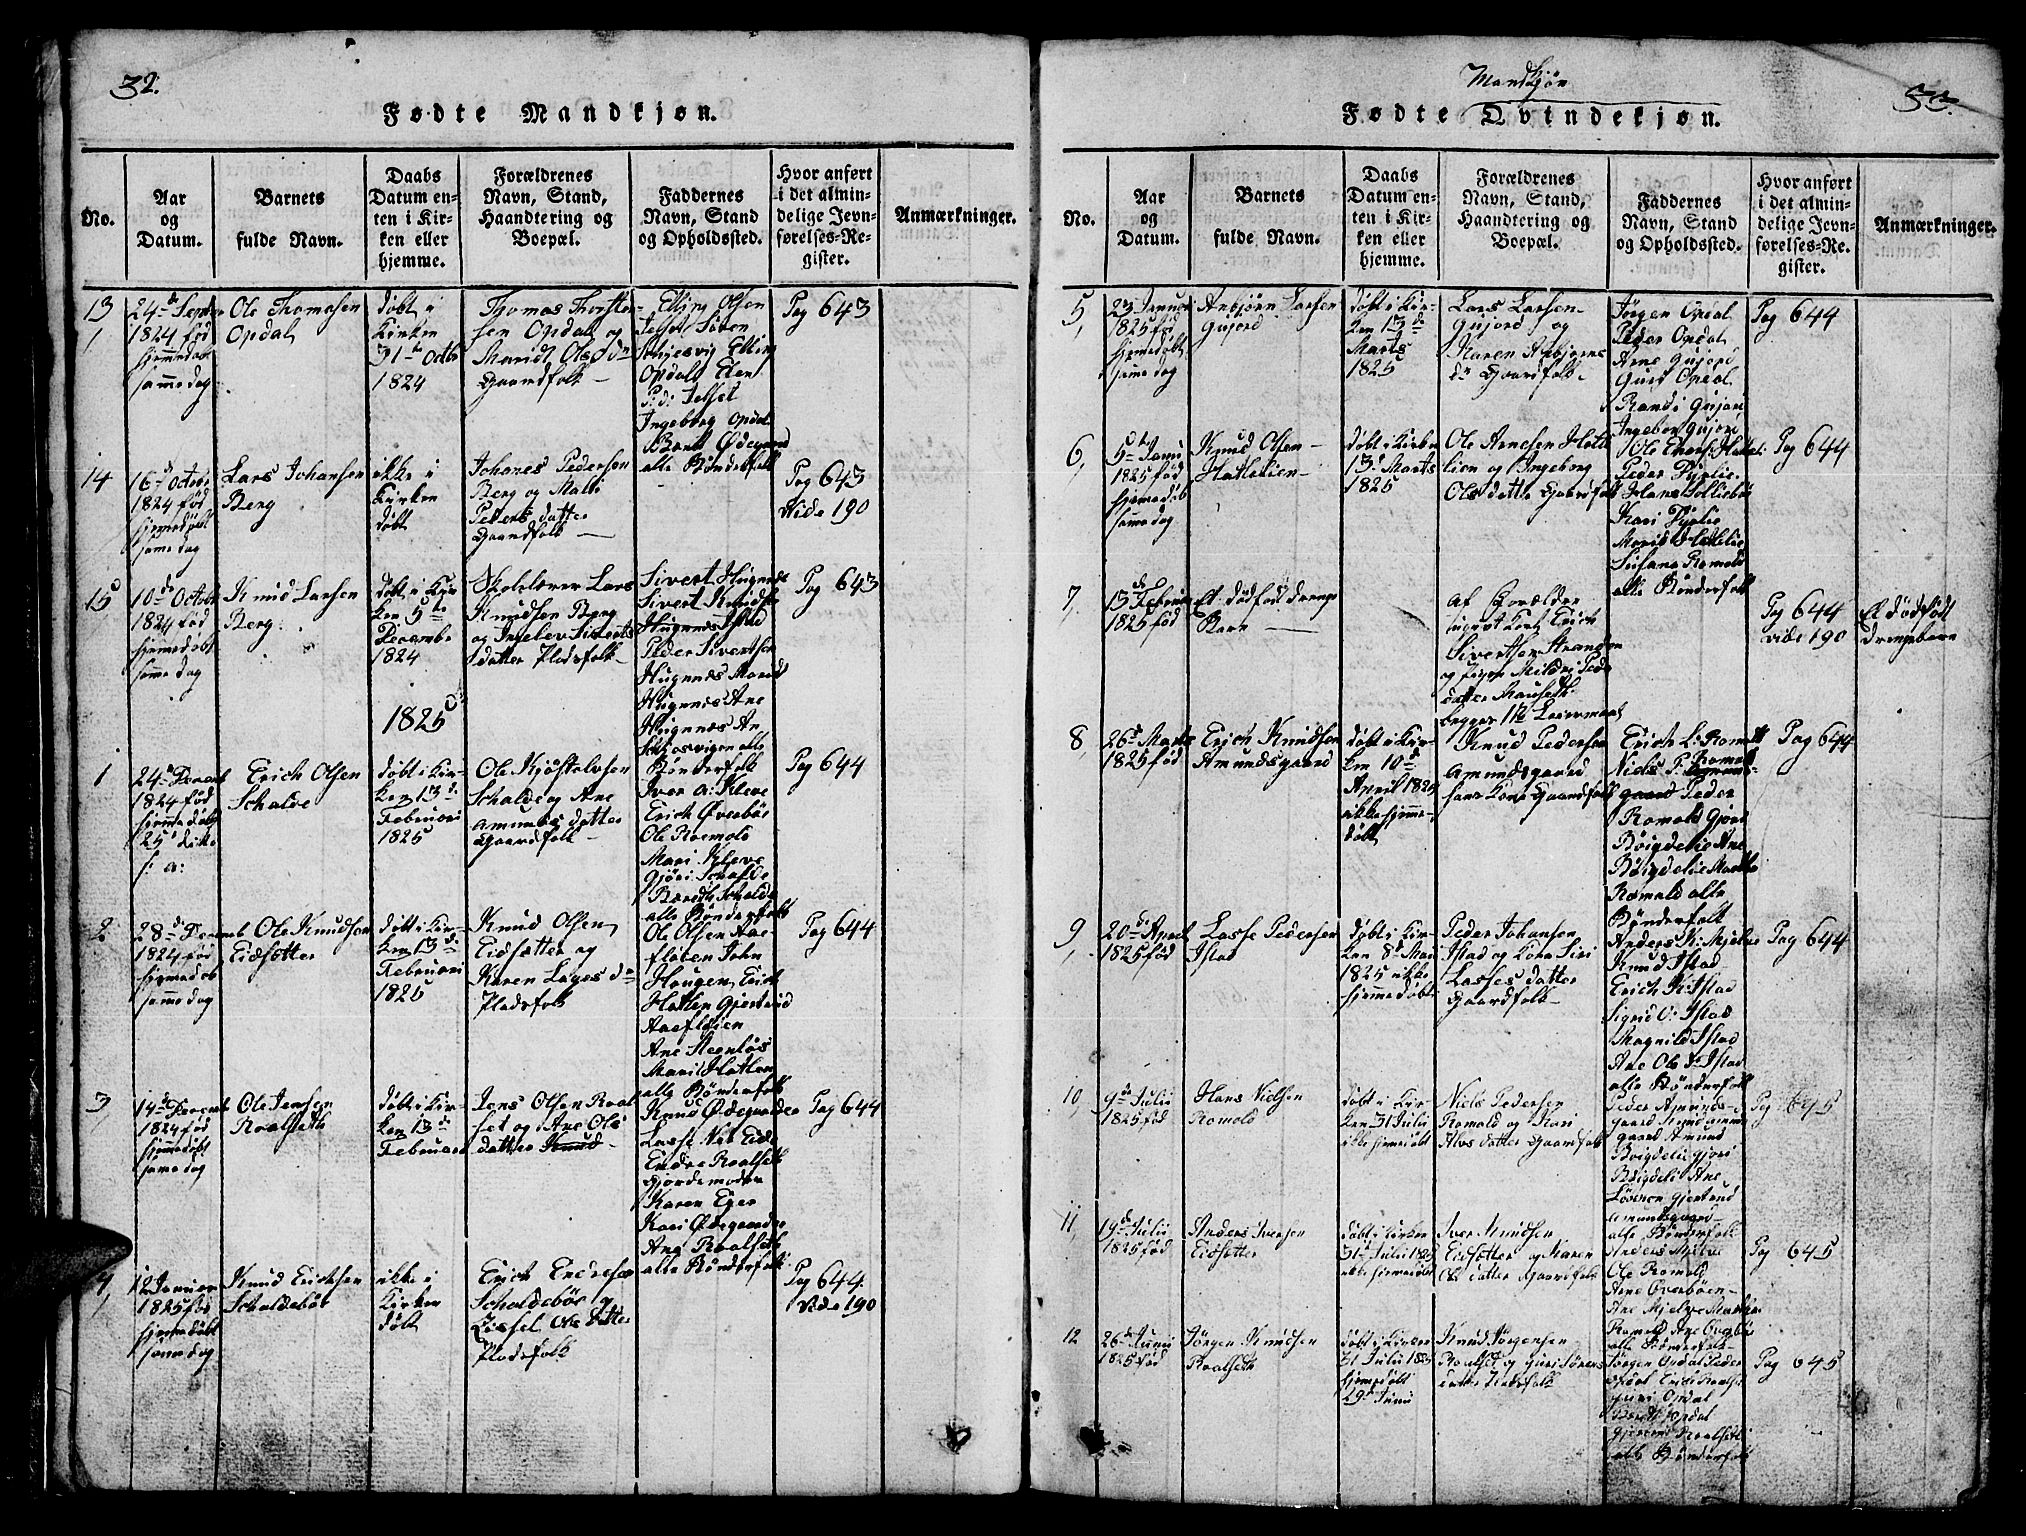 32.
Fødte Mandkjøn.
No.
Aar
og
Datum.
Barnets
fulde Navn.
Daabs
Datum en-
ten i Kir-
ken eller
hjemme.
Forældrenes
Navn, Stand,
Haandtering og
Boepæl.
Faddernes
Navn, Stand
og Opholdssted.
Hvor anført
i det almin-
delige Jevn-
førelses-Re-
gister.
Anmærkninger.
13
24de Septr
1824 fød
hjemedøbt
samme dag
Ole Thomesen
Opdal
døbt i
Kirken
31te Octbr
1824
Thomas Thorste-
sen Opdal og
Marit Olsdr
Gaardfolk
Opdal
Ingeborg Opdal
Berit Ødegaard
alle Bønderfolk
Pag 643
14
16de Octbr
1824 fød
hjemedøbt
same dag
Lars Johansen
Berg
ikke i
Kirken
døbt
Johanes Pedersen
Berg og Malli
Peders datter
Gaardfolk
Pag 643
Vide 190
15
10de Octbr
1824 fød
hjemedøbt
same dag
Knud Larsen
Berg
døbt i Kir
ken 5te
Decembr
1824
Skolelærer Lars
Knudsen Berg
og Ingelev Siverts
datter Pladsfolk
Sivert Hugnes
Sivert Knuds
Hugnes Istad
Peder Sivertsen
Hugnes Marit
Hugnes Ane
Hugnes An
alle
Bønderfolk
Pag 643
1825
1
24de Decemb
1824 fød
hjemmedøbt
25de dito
s: a:
Erich Olsen
Schalde
døbt i Kir-
ken 13de
Februari
1825
Ole Kjøstelvsen
Schalde og Ane
Amunds datter
Gaardfolk
Iver A: Kleve
Erich Øverbøe
Ole Roemold
Mari Kleve
Gjøri Schalde
Bereth Schalde
alle Bønderfolk
Pag 644
2
28de Decemb
1824 fød
hjemmedøb
samme dag
Ole Knudsen
Eidsetter
døbt i Kir-
ken 13de
Februari
1825
Knud Olsen
Eidsetter og
Karen Larsdr
Pladsfolk
Ole Olsen Aae-
fløten John
Hougen, Erich
Hatlen Gjertrud
Aaefløien
Ane Steenløs
Marit Hatlen
alle Bønderfolk
Pag 644
3
14de Decemb
1824 fød
hjemmedøbt
same dag
Ole Jensen
Roalseth
døbt i Kir-
ken 13de
Februari
Jens Olsen Roal
set og Ane Ols
datter Knud
Knud Ødegaarden
Lasse Ner Eide
Endre Roalseth
Gjordemoder
Karen Eger
Kari Ødegaarden
Ane Roalseth
alle Bønderfolk
Pag 644
4
12 Januar
1825 fød
hjemmedøbt
samme dag
Knud Erichsen
Schaldebøe
ikke i
Kirken
døbt
Erich Endresen
Schaldebøe og
Lissel Ols datter
Pladsfolk
Pag 644
Vide 190
Mandkjøn
Fødte Qvindekjøn.
33.
No.
Aar
og
Datum.
Barnets
fulde Navn.
Daabs
Datum en-
ten i Kir-
ken eller
hjemme.
Forældrenes
Navn, Stand,
Haandtering og
Boepæl.
Faddernes
Navn, Stand
og Opholdssted.
Hvor anført
i det almin-
delige Jevn-
førelses-Re-
gister.
Anmærkninger.
5
23 Januar
1825 fød
hjemedøbt
samme dag
Anbjørn Larsen
Gujord
døbt i Kir-
ken 13de
Marts
1825
Lars Larsen
Gujord og
Karen Anbjørns
dr Gaardfolk
Jørgen Opdal
Peder Opdal
Arne Gujord
Guri Opdal
Randi Gujord
Ingebor Gujord
6
5te Janu
1825 fød
hjemedøb
same dag
Knud Olsen
Hatlelien
døbt i Kirken
13de Marts
1825
Ole Arnesen Hatle
lien og Ingeborg
Ols datter Gaardfolk
Peder
Hans
Kari
Marit Hatlelie
Susana Romold
alle Bønderfolk
Pag 644
Pag 644
7
13de Februar
1825 fød
et dødfødt drenge
Barn
Af Forælder
ugivt Karl Erich
Sivertsen Strangen
og Pigen Mildri Peds
datter Mauseth
begges 1te Leiermaal
Pag 644
vide 190
Et dødfødt
drengebarn
8
26de Marts
1825 fød
Erich Knudsen
Amundsgaard
døbt i Kir-
ken 10de
April 1825
ikke hjemme-
døbt
Knud Pedersen
Amundsgaard
hans Kone Gaardfolk
Erich L: Romold
Niels P: Romold
gaard Peder
Romold Gjøri
Bøigdelie Ane
Bøigdelie Marthe
Romold alle
Bønderfolk
Pag 644
9
20de April
1825 fød
Lasse Pedersen
Istad
døbt i Kir-
ken 8de Mai
1825 ikke
hjemmedøbt
Peder Johansen
Istad og Kona Siri
Lasses datter
Gaardfolk
Anders K: Mjelve
Knud Istad
Erich K: Istad
Sigrid O: Istad
Magnild Istad
Ane Ole Dr Istad
alle Bønderfolk
Pag 644
10
9de Julii
1825 fød
Hans Nielsen
Romold
døbt i Kir-
ken 31 Julii
ikke hjemmedøbt
Niels Pedersen
Romold og Kari
Alvs datter Gaardfolk
Peder Amunds-
gaard Knud Amun
gaard Amund
Bøigdeli Gjøri
Bøigdeli Ane
Løvnen Gjertrud
Amundsgaard
alle Bønderfolk
Pag 645
11
19de Julii
1825 fød
Anders Iversen
Eidsetter
døbt i Kirken
31te Julii 1825
ikke hjemmedøbt
Iver Knudsen
Eidsetter og Karen
Ols datter Gaardfolk
Anders Mjelve
Ole Romold
Arne Overbøen
Ane Mjelve Marthe
Romold Ane Overbø
alle Bønderfolk
Pag 645
12
26de Junii
1825 fød
Jørgen Knudsen
Roalseth
døbt i Kirken
31 Julii 1825
hjemedøbt
29de Juni
Knud Jørgensen
Roalset og Guri Sørens
datter Pladsfolk
Jørgen Opdal Peder
Opdal Erich Roalset
Guri Opdal
Berit Opdal
Gjertrud Roalset
alle Bønderfolk
Pag 645